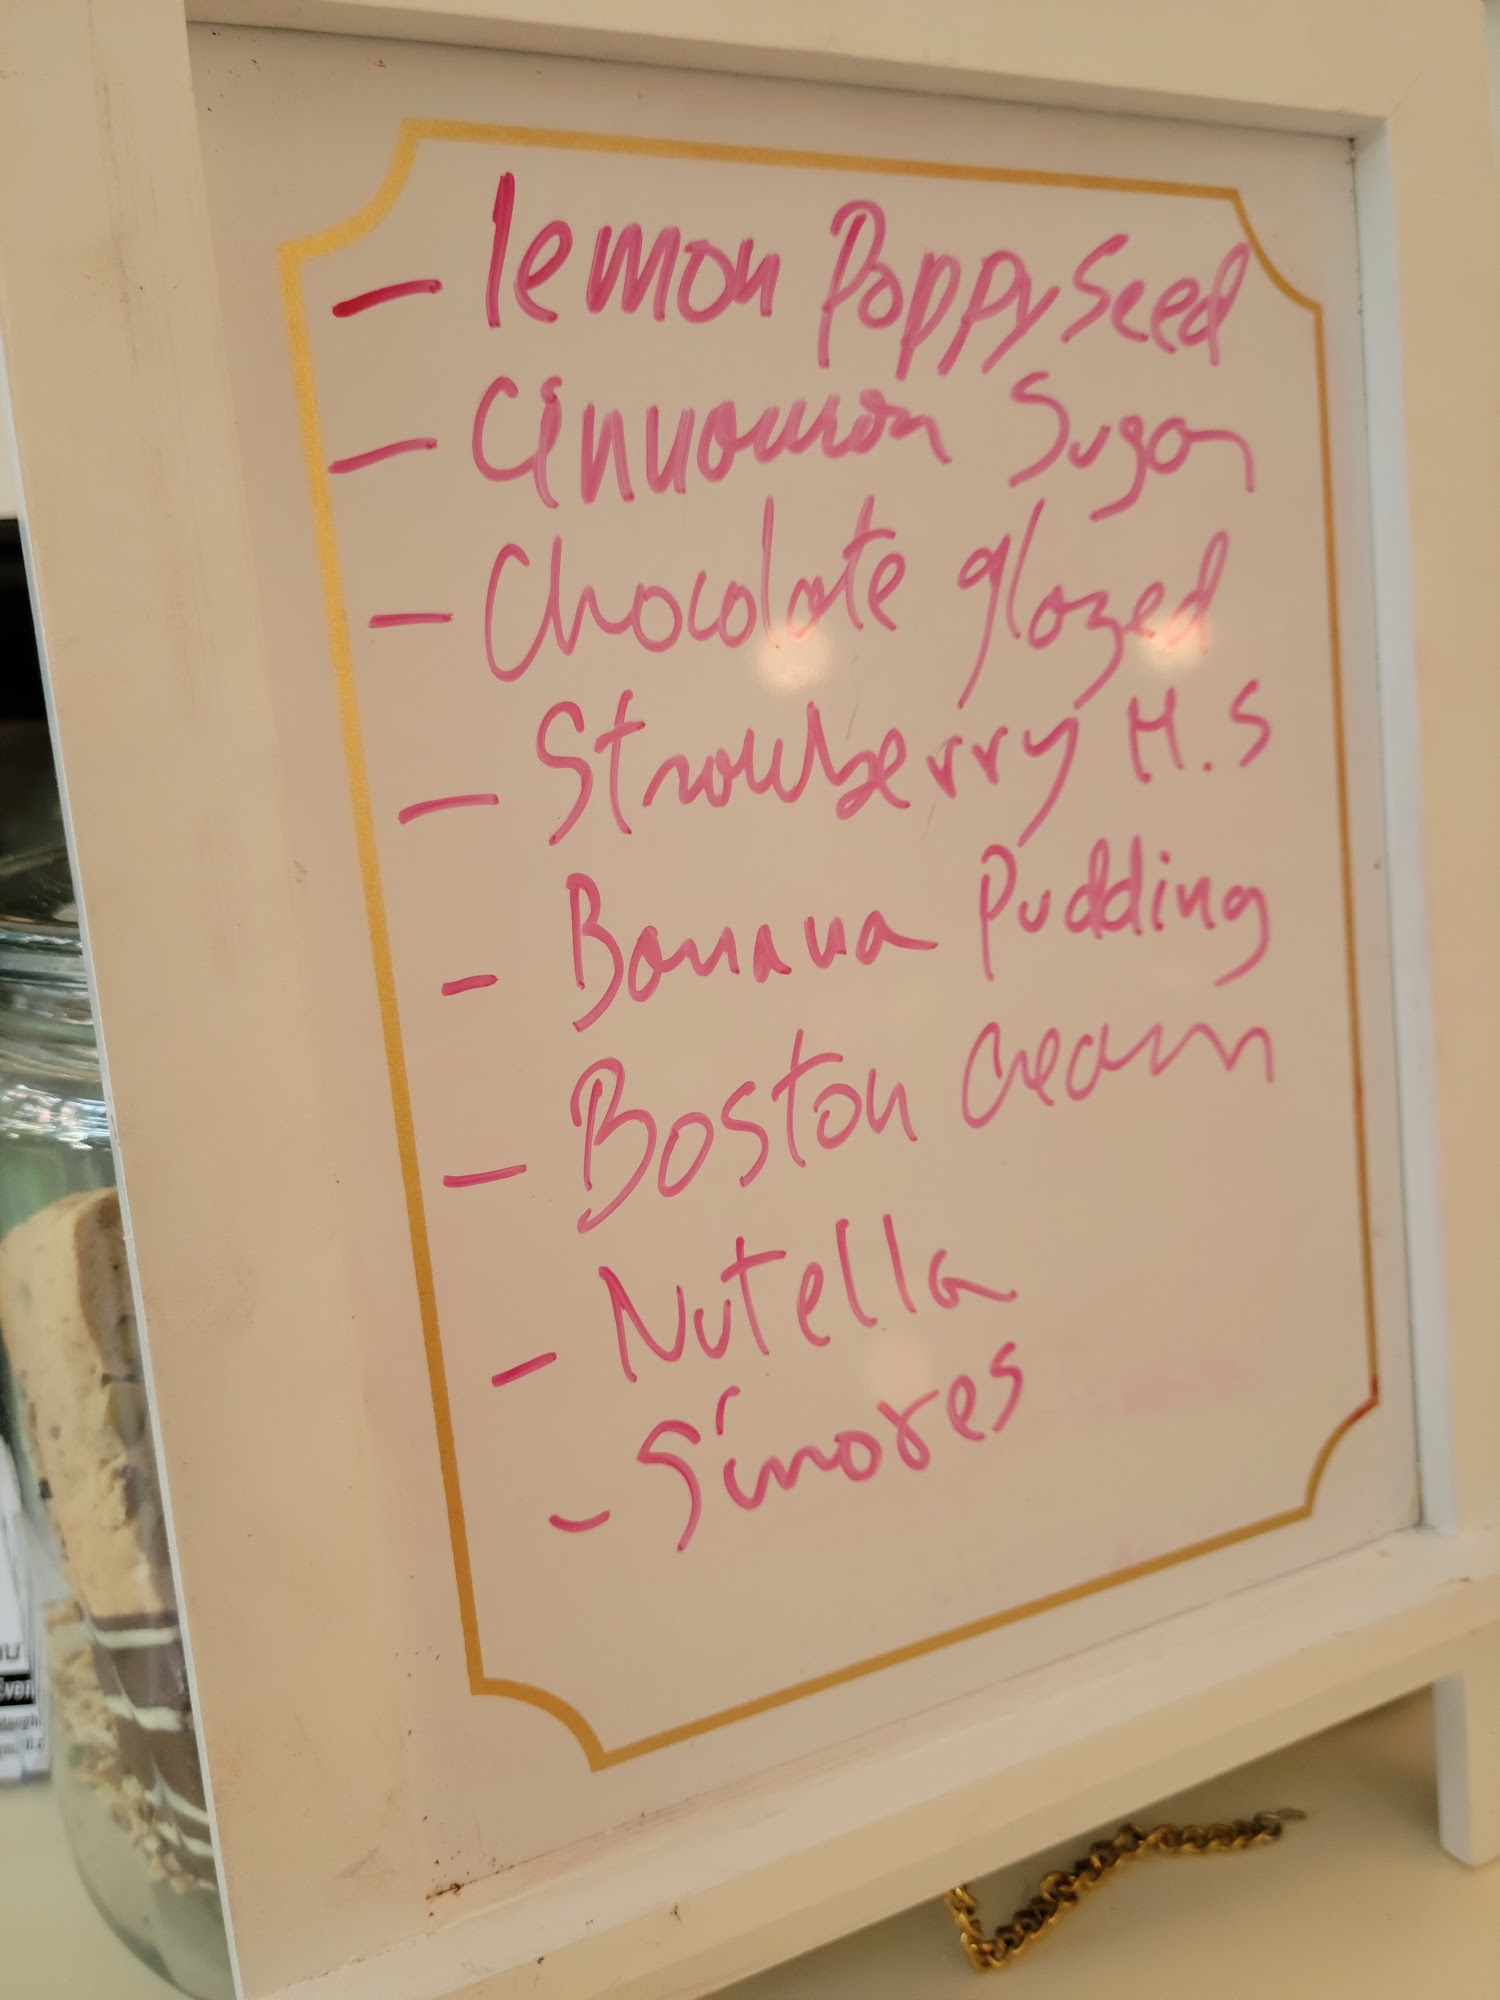 - lemon Poppy Seed
- Cinnamon Sugar
- Chocolate glazed
- Strawberry H.S
- Banana Pudding
- Boston Cream
- Nutella
- S'mores